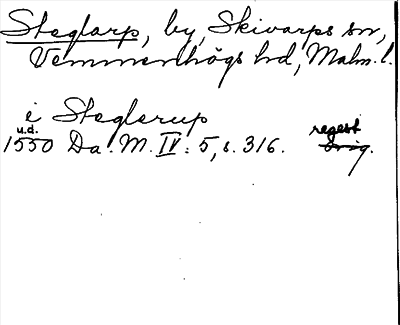 Steglarp, by, Skivarps sn,
Vemmenhögs hd, Malm. l.
i Steglerup
u.d.
1550 Da. M. IV: 5, s. 316. regest
Orig.